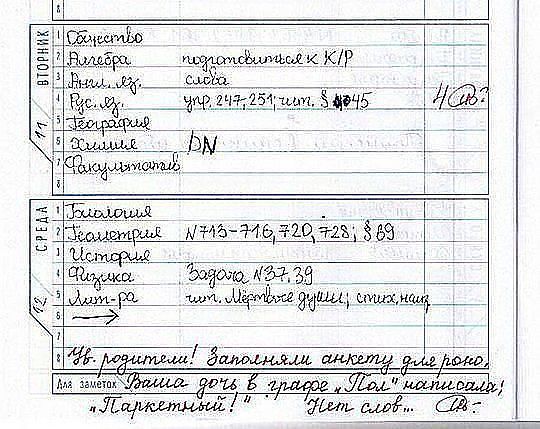 8
ВТОРНИК 11
1 Общество
2 Алгебра подготовиться к К/Р
3 Англ. яз. слова
4 Рус. яз. упр. 247, 251; чит. § 45 4
5 География
6 Химия
7 Факультатив
8
СРЕДА 12
1 Биология
2 Геометрия N713-716, 720, 728; § 69
3 История
4 Физика Задача N37,39
5 Лит-ра чит. Мёртвые души; стих. наиз
6 →
7
8 Ув. родители! Заполняли анкету для роно.
Для заметок Ваша дочь в графе „Пол" написала;
„Паркетный!" Нет слов...